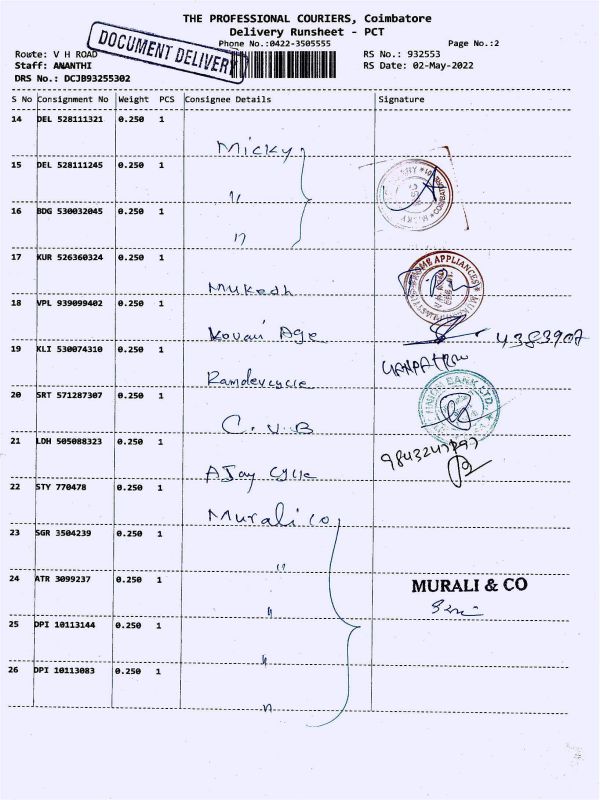 THE PROFESSIONAL COURIERS, Coimbatore
Delivery Runsheet - PCT
Phone No.:0422-3505555 Page No.:2
DOCUMENT DELIVERY
Route: V H ROAD RS No.: 932553
Staff: ANANTHI RS Date: 02-May-2022
DRS No.: DCJB93255302
S No Consignment No Weight PCS Consignee Details Signature
14 DEL 528111321 0.250 1
Micky
15 DEL 528111245 0.250 1
"
16 BDG 530032045 0.250 1
"
17 KUR 526360324 0.250 1
HOME APPLIANCES
Mukesh
18 VPL 939099402 0.250 1
Kovai Age 4383907
19 KLI 530074310 0.250 1
Ramdevcycle
UNION BANK LTD.
20 SRT 571287307 0.250 1
C.U.B
21 LDH 505088323 0.250 1
AJay Cycle
22 STY 770478 0.250 1
Murali co
23 SGR 3504239 0.250 1
"
24 ATR 3099237 0.250 1
MURALI & CO
"
25 DPI 10113144 0.250 1
"
26 DPI 10113083 0.250 1
"